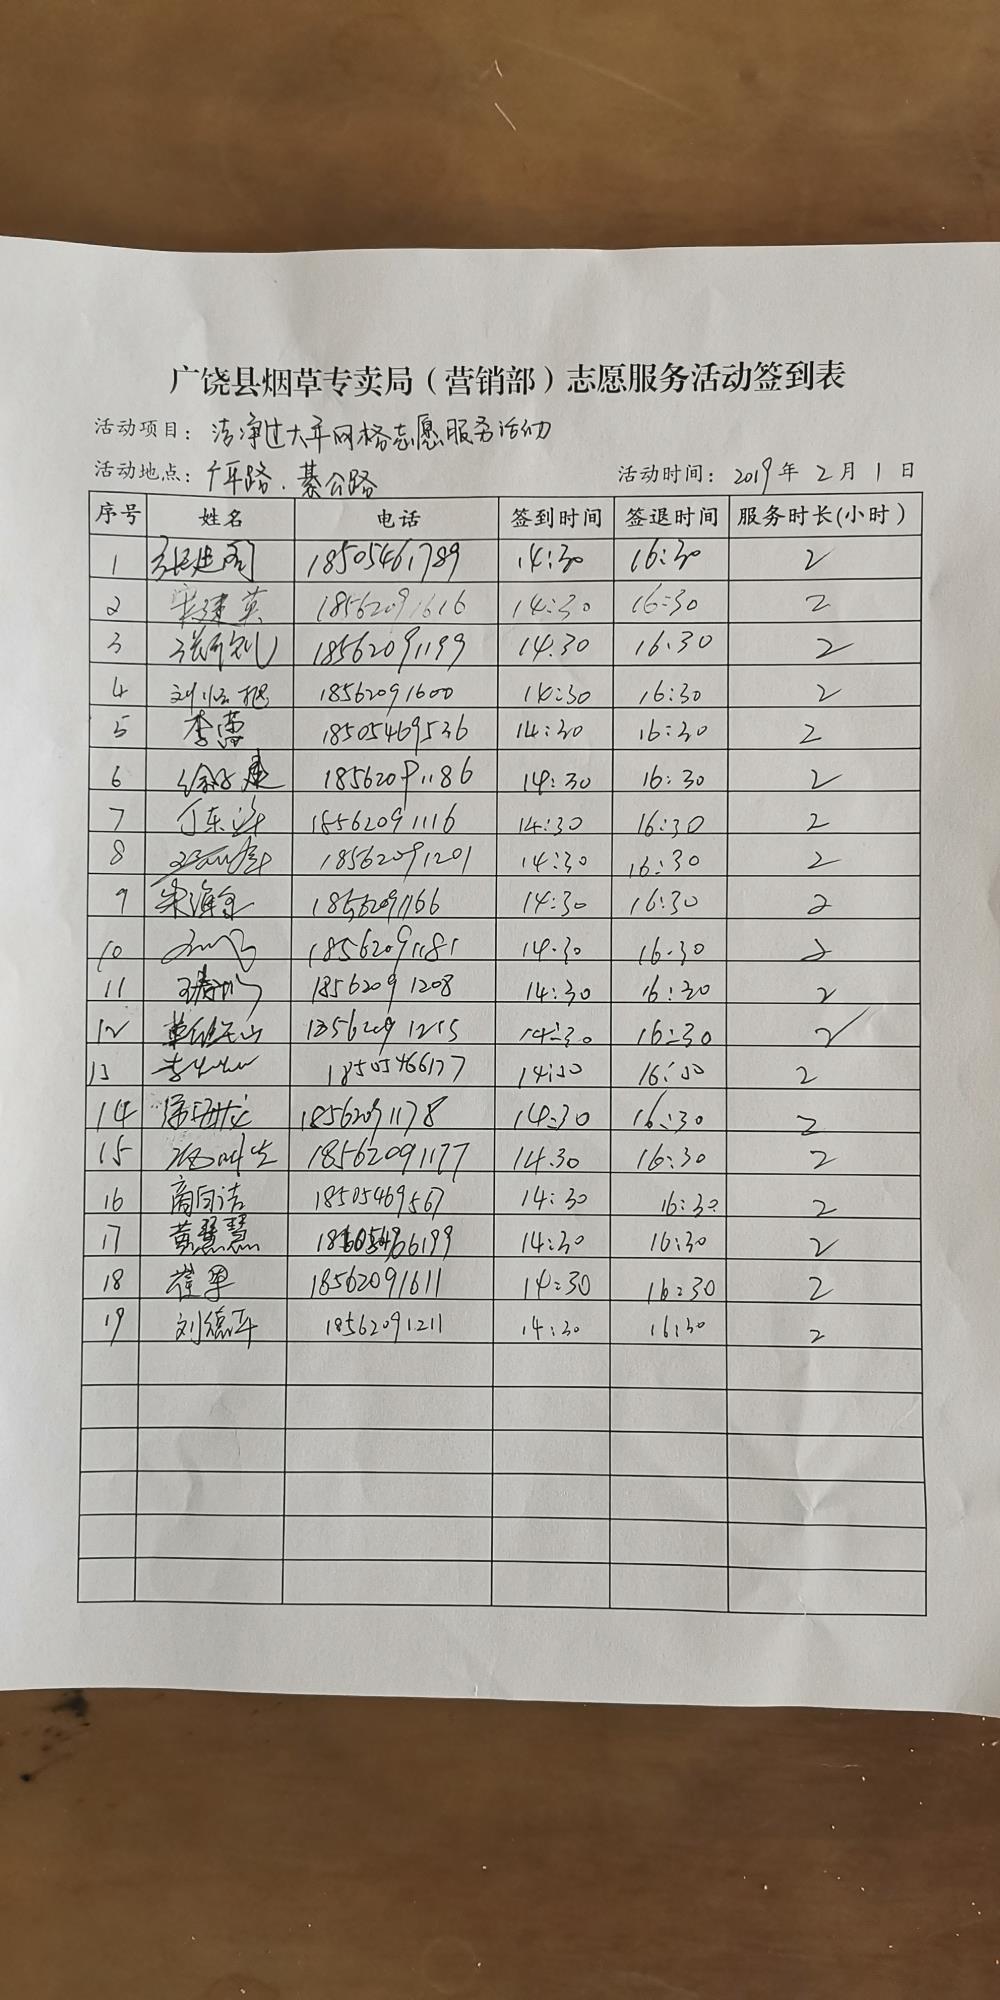 广饶县烟草专卖局（营销部）志愿服务活动签到表
活动项目：洁净过大年网格志愿服务活动
活动地点：千年路、綦公路 活动时间：2019年2月1日
序号 姓名 电话 签到时间 签退时间 服务时长(小时)
1 18505461789 14:30 16:30 2
2 宋建英 18562091616 14:30 16:30 2
3 18562091199 14:30 16:30 2
4 18562091600 14:30 16:30 2
5 李蕾 18505469536 14:30 16:30 2
6 18562091186 14:30 16:30 2
7 18562091116 14:30 16:30 2
8 18562091201 14:30 16:30 2
9 18562091166 14:30 16:30 2
10 18562091181 14:30 16:30 2
11 18562091208 14:30 16:30 2
12 14:30 16:30 2
13 18505466177 14:30 16:30 2
14 18562091178 14:30 16:30 2
15 18562091177 14:30 16:30 2
16 商白洁 18505469567 14:30 16:30 2
17 黄慧慧 14:30 16:30 2
18 崔勇 18562091611 14:30 16:30 2
19 刘德军 18562091211 14:30 16:30 2